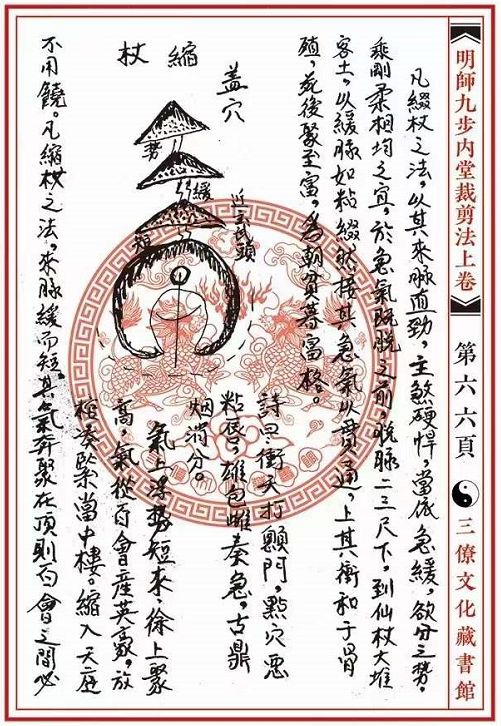 明師九步内堂裁剪法上卷
第六六頁
三僚文化藏書館
凡綴杖之法，以其来脉直勁，主煞硬悍，當依急緩，欲分三势，
乘剛柔相均之宜，於急氣既脱之前，脱脉二三尺下，到仙杖大堆
客土，以緩脉如粘綴然接其急氣以貫通，上其衝和于骨
殖，葬後聚至富，為朝貧暮富格。
縮杖
盖穴
势
緩
短
近玄武頭
詩曰：衝天打顋門，點穴悪
粘唇。碓包雖奏急，古鼎
烟消分。
氣上浮势短来，徐上聚
高，氣從百會産英豪，放
棺凑緊當中樓。縮入天庭
不用饒。凡縮杖之法，来脉緩而短，其氣奔聚在頂則百會之間必